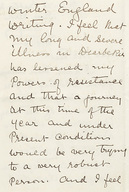 winter England
writing. I feel that
my long and severe
illness in December
has lessened my
Power of resistance
and that a journey
at this time of the
Year and under
Present Conditions
would be very trying
to a very robust
Person. And I feel